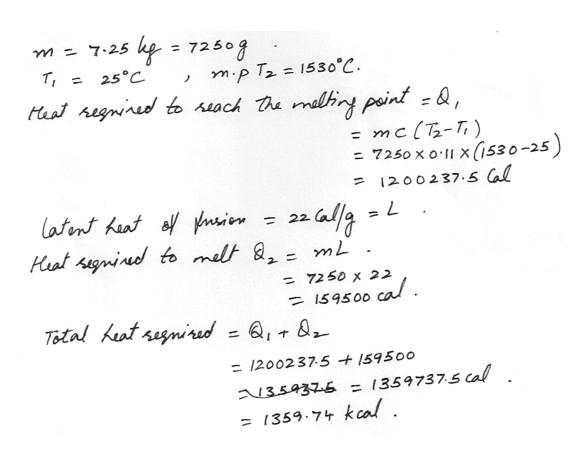 m = 7.25 kg = 7250g .
T₁ = 25°C , m.p T₂ = 1530°C.
Heat required to reach the melting point = Q₁
= mc (T₂-T₁)
= 7250 x 0.11 x (1530-25)
= 1200237.5 Cal
Latent heat of fusion = 22 Cal/g = L .
Heat required to melt Q₂ = mL .
= 7250 x 22
= 159500 cal .
Total heat required = Q₁ + Q₂
= 1200237.5 + 159500
= 135937.5 = 1359737.5 cal .
= 1359.74 kcal .